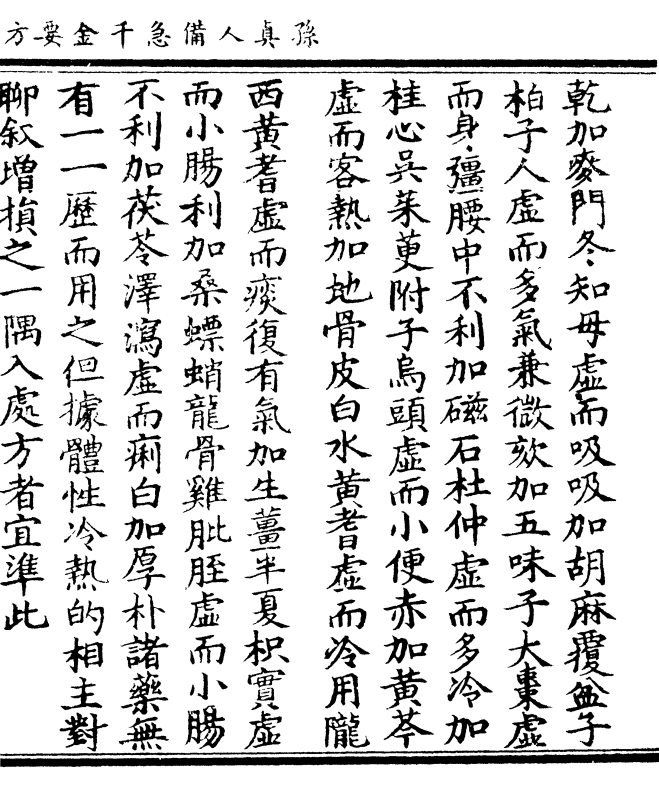 孫真人備急千金要方
乾加麥門冬知母虛而吸吸加胡麻覆盆子
柏子人虛而多氣兼微欬加五味子大棗虛
而身殭腰中不利加磁石杜仲虛而多冷加
桂心吳茱萸附子烏頭虛而小便赤加黃芩
虛而客熱加地骨皮白水黃耆虛而冷用隴
西黃耆虛而痰復有氣加生薑半夏枳實虛
而小腸利加桑螵蛸龍骨雞肶胵虛而小腸
不利加茯苓澤瀉虛而痢白加厚朴諸藥無
有一一歷而用之但據體性冷熱的相主對
聊叙增損之一隅入處方者宜準此